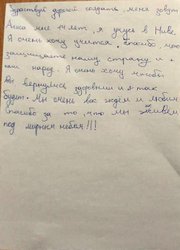 Здравствуй дорогой солдат, меня зовут
Алиса мне лет, я учусь в
Я очень хочу учится. Спасибо
защищаете нашу страну и
наш народ. Я очень хочу чтобы
Вы вернулись здоровыми и я так
будет. Мы очень вас ждем и любим
Спасибо за то что мы живем
под мирным небом!!!